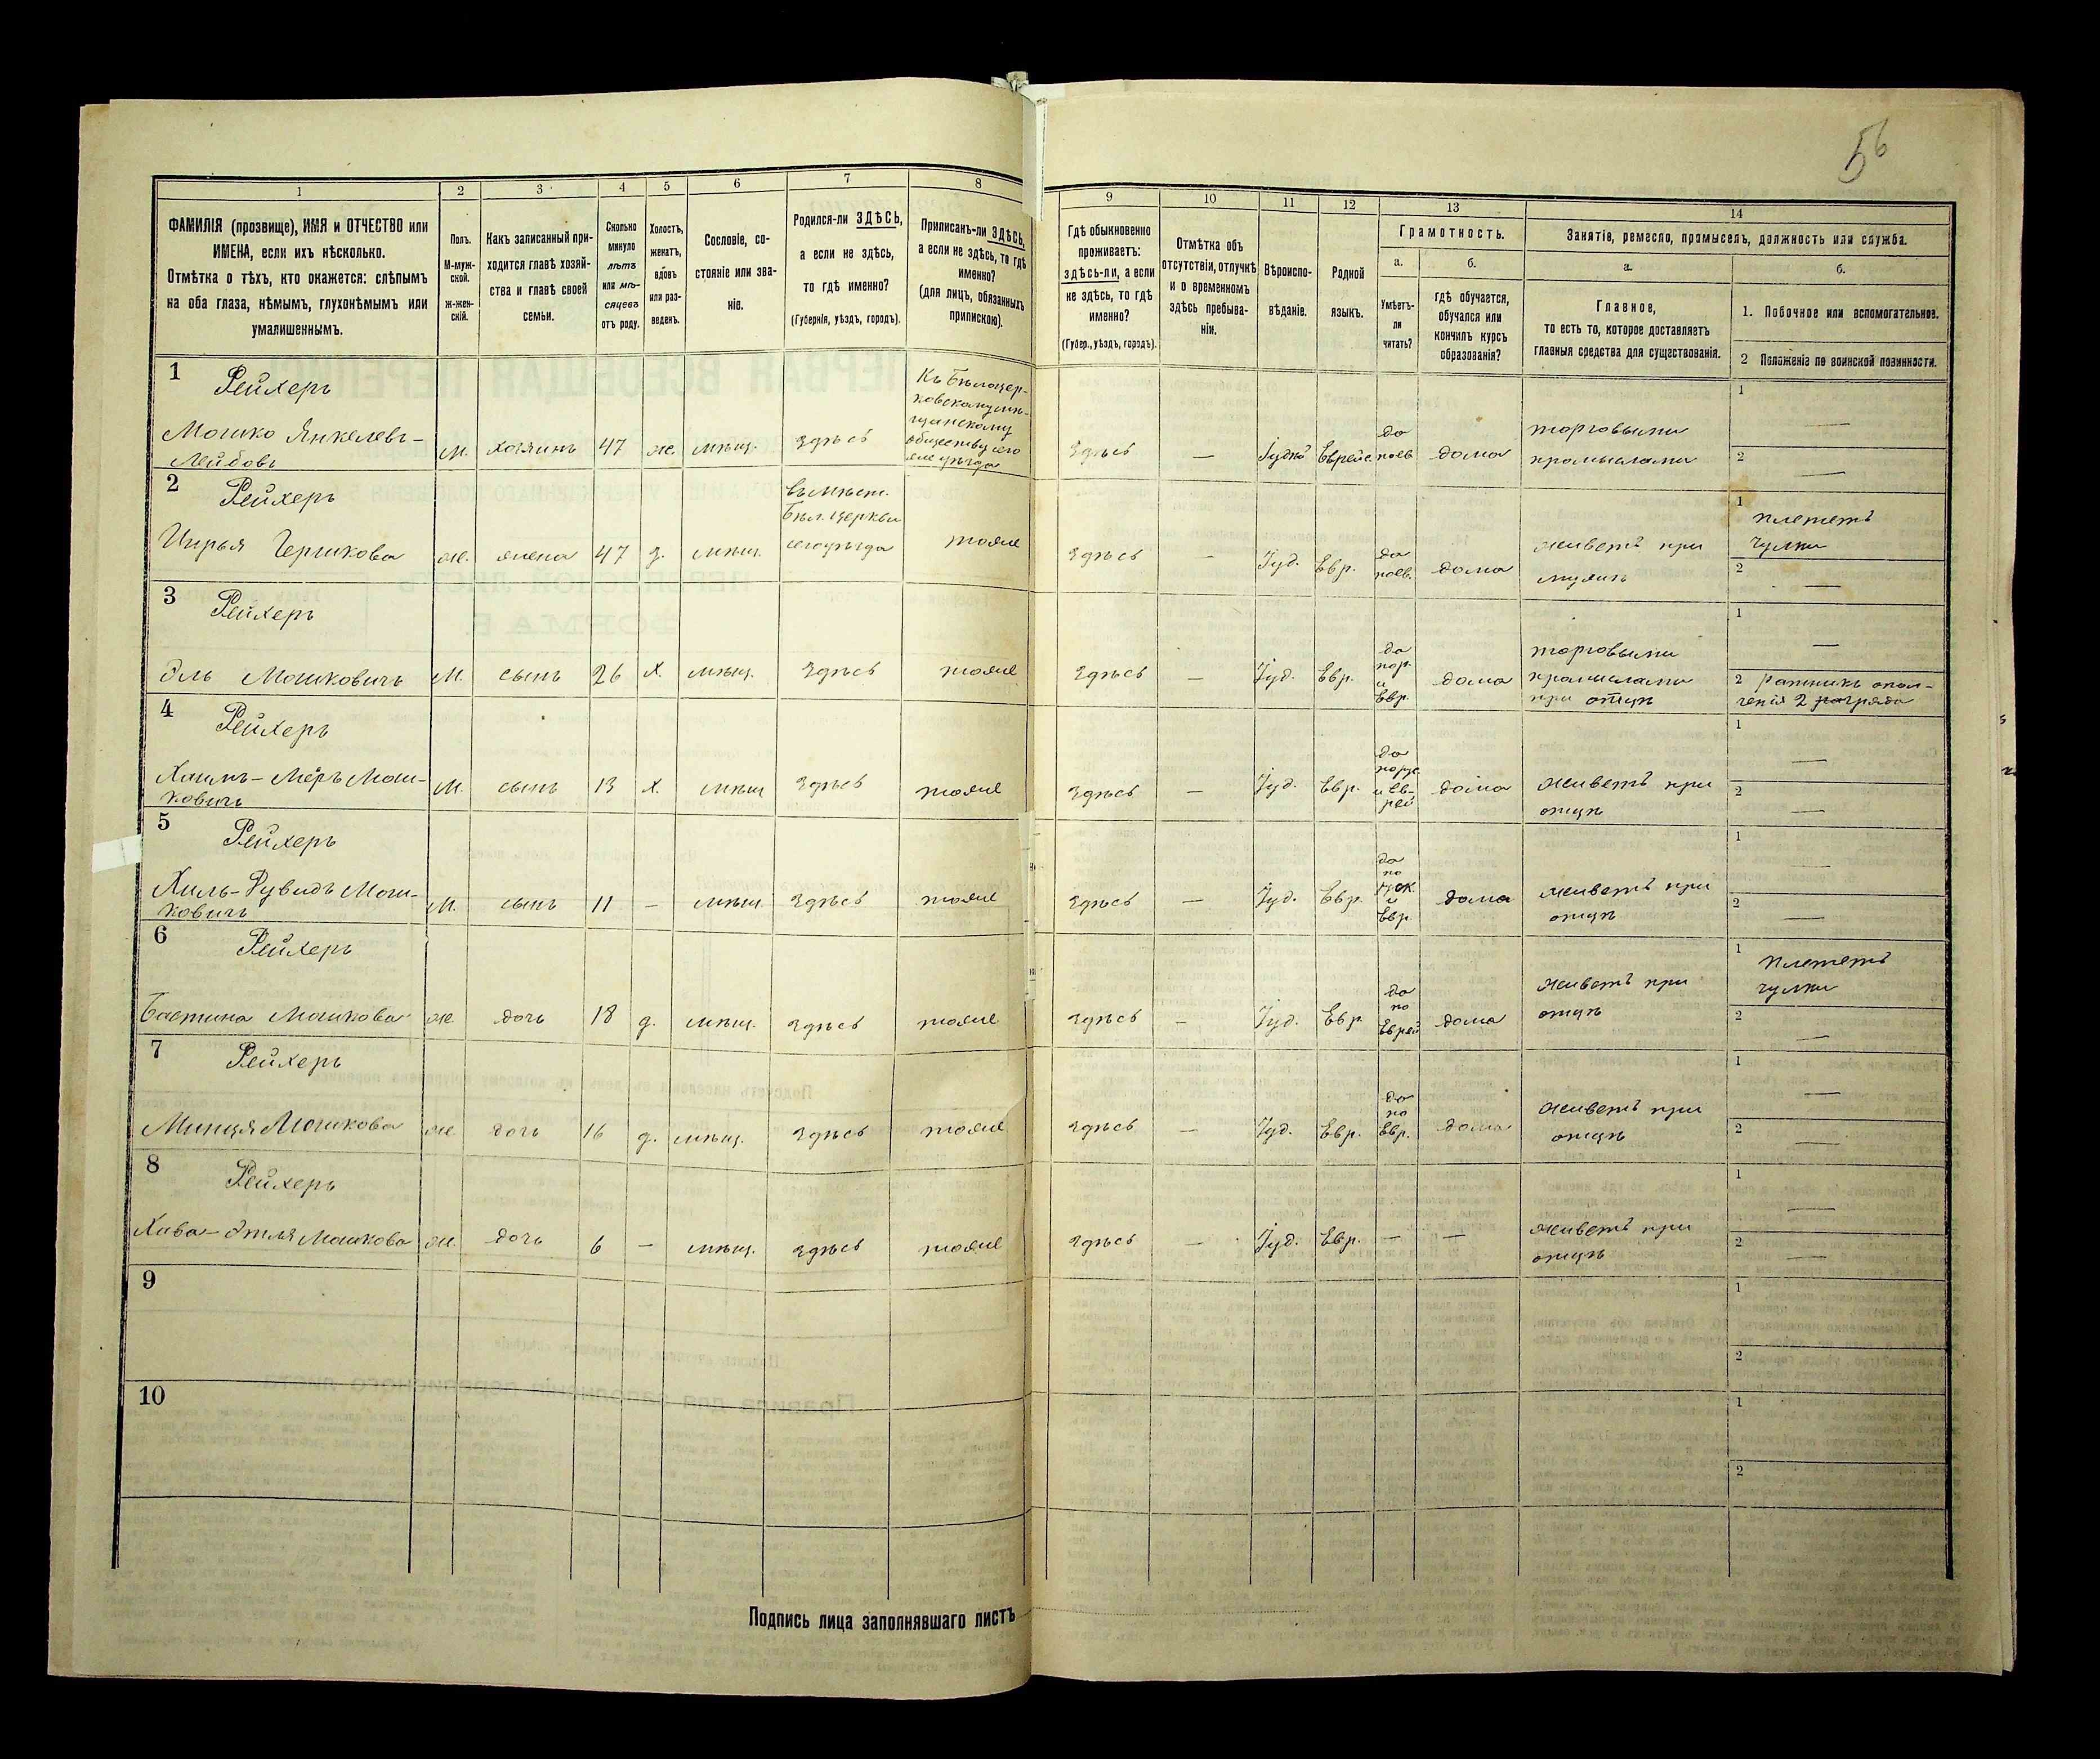 56
1 2 3 4 5 6 7 8 9 10 11 12 13 14
ФАМИЛІЯ (прозвище), ИМЯ и ОТЧЕСТВО или
ИМЕНА, если ихъ нѣсколько.
Отмѣтка о тѣхъ, кто окажется: слѣпымъ
на оба глаза, нѣмымъ, глухонѣмымъ или
умалишеннымъ.
Полъ.
М-муж-
ской.
ж-жен-
скій.
Какъ записанный при-
ходится главѣ хозяй-
ства и главѣ своей
семьи.
Сколько
минуло
лѣтъ
или мѣ-
сяцевъ
отъ роду.
Холостъ,
женатъ,
вдовъ
или раз-
веденъ.
Сословіе, со-
стояніе или зва-
ніе.
Родился-ли ЗДѢСЬ,
а если не здѣсь,
то гдѣ именно?
(Губернія, уѣздъ, городъ).
Приписанъ-ли ЗДѢСЬ,
а если не здѣсь, то гдѣ
именно?
(для лицъ, обязанныхъ
припискою).
Гдѣ обыкновенно
проживаетъ:
здѣсь-ли, а если
не здѣсь, то гдѣ
именно?
(Губер., уѣздъ, городъ).
Отмѣтка объ
отсутствіи, отлучкѣ
и о временномъ
здѣсь пребыва-
ніи.
Вѣроиспо-
вѣданіе.
Родной
языкъ.
Грамотность.
а.
Умѣетъ-
ли
читать?
б.
гдѣ обучается,
обучался или
кончилъ курсъ
образованія?
Занятіе, ремесло, промыселъ, должность или служба.
а.
Главное,
то есть то, которое доставляетъ
главныя средства для существованія.
б.
1. Побочное или вспомогательное.
2 Положеніе по воинской повинности.
1 Рейхеръ
Мошко Янкелевъ-
Лейбовъ
м. хозяинъ 47 ж. мѣщ. здѣсь
Къ Бѣлоцер-
ковскому мѣ-
щанскому
обществу сего
же уѣзда
здѣсь — Іудей Еврейс.
да
по евр. дома
торговыми
промыслами
1 —
2 —
2 Рейхеръ
Черикова
ж. жена 47 з. мѣщ.
въ мѣст.
Бѣл. Церкви
сего уѣзда
тоже
здѣсь — Іуд. Евр.
да
по евр. дома
живетъ при
мужѣ
1 плететъ
чулки
2 —
3 Рейхеръ
Эль Мошковичъ
м. сынъ 26 х. мѣщ. здѣсь тоже
здѣсь — Іуд. Евр.
да
по р.
и
Евр. дома
торговыми
промыслами
при отцѣ
1 —
2 ратникъ опол-
ченія 2 разряда
4 Рейхеръ
Хаимъ-Меръ Мош-
ковичъ
м. сынъ 13 х. мѣщ здѣсь тоже
здѣсь — Іуд. Евр.
да
по рус
и Ев-
рей дома
живетъ при
отцѣ
1 —
2 —
5 Рейхеръ
Хиль-Рувидъ Мош-
ковичъ
м. сынъ 11 — мѣщ здѣсь тоже
здѣсь — Іуд. Евр.
да
по
рус
и
Евр. дома
живетъ при
отцѣ
1 —
2 —
6 Рейхеръ
Бастина Мошкова
ж. дочь 18 д. мѣщ. здѣсь тоже
здѣсь — Іуд. Евр
да
по
Еврей дома
живетъ при
отцѣ
1 плететъ
чулки
2 —
7 Рейхеръ
Минця Мошкова
ж. дочь 16 д. мѣщ. здѣсь тоже
здѣсь — Іуд. Евр.
да
по
Евр. дома
живетъ при
отцѣ
1 —
2 —
8 Рейхеръ
Хава-Этля Мошкова
ж. дочь 6 — мѣщ. здѣсь тоже
здѣсь — Іуд. Евр. — —
живетъ при
отцѣ
1 —
2 —
9
1
2
10
1
2
Подпись лица заполнявшаго листъ